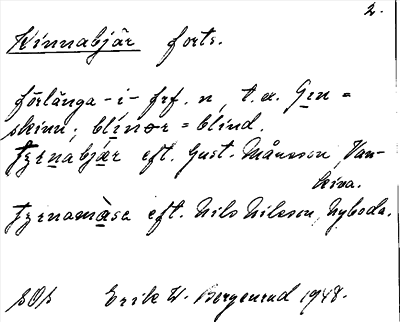 2.
Kinnabjär forts.
förlänga -i- frf. n, t.ex. Gın =
skinn; blinər = blind.
tʒınabjär eft. Gust. Månsson, Van-
kiva.
tʒınamàsa eft. Nils Nilsson, Nyboda.
SOs Erik W. Bergenrud 1948.